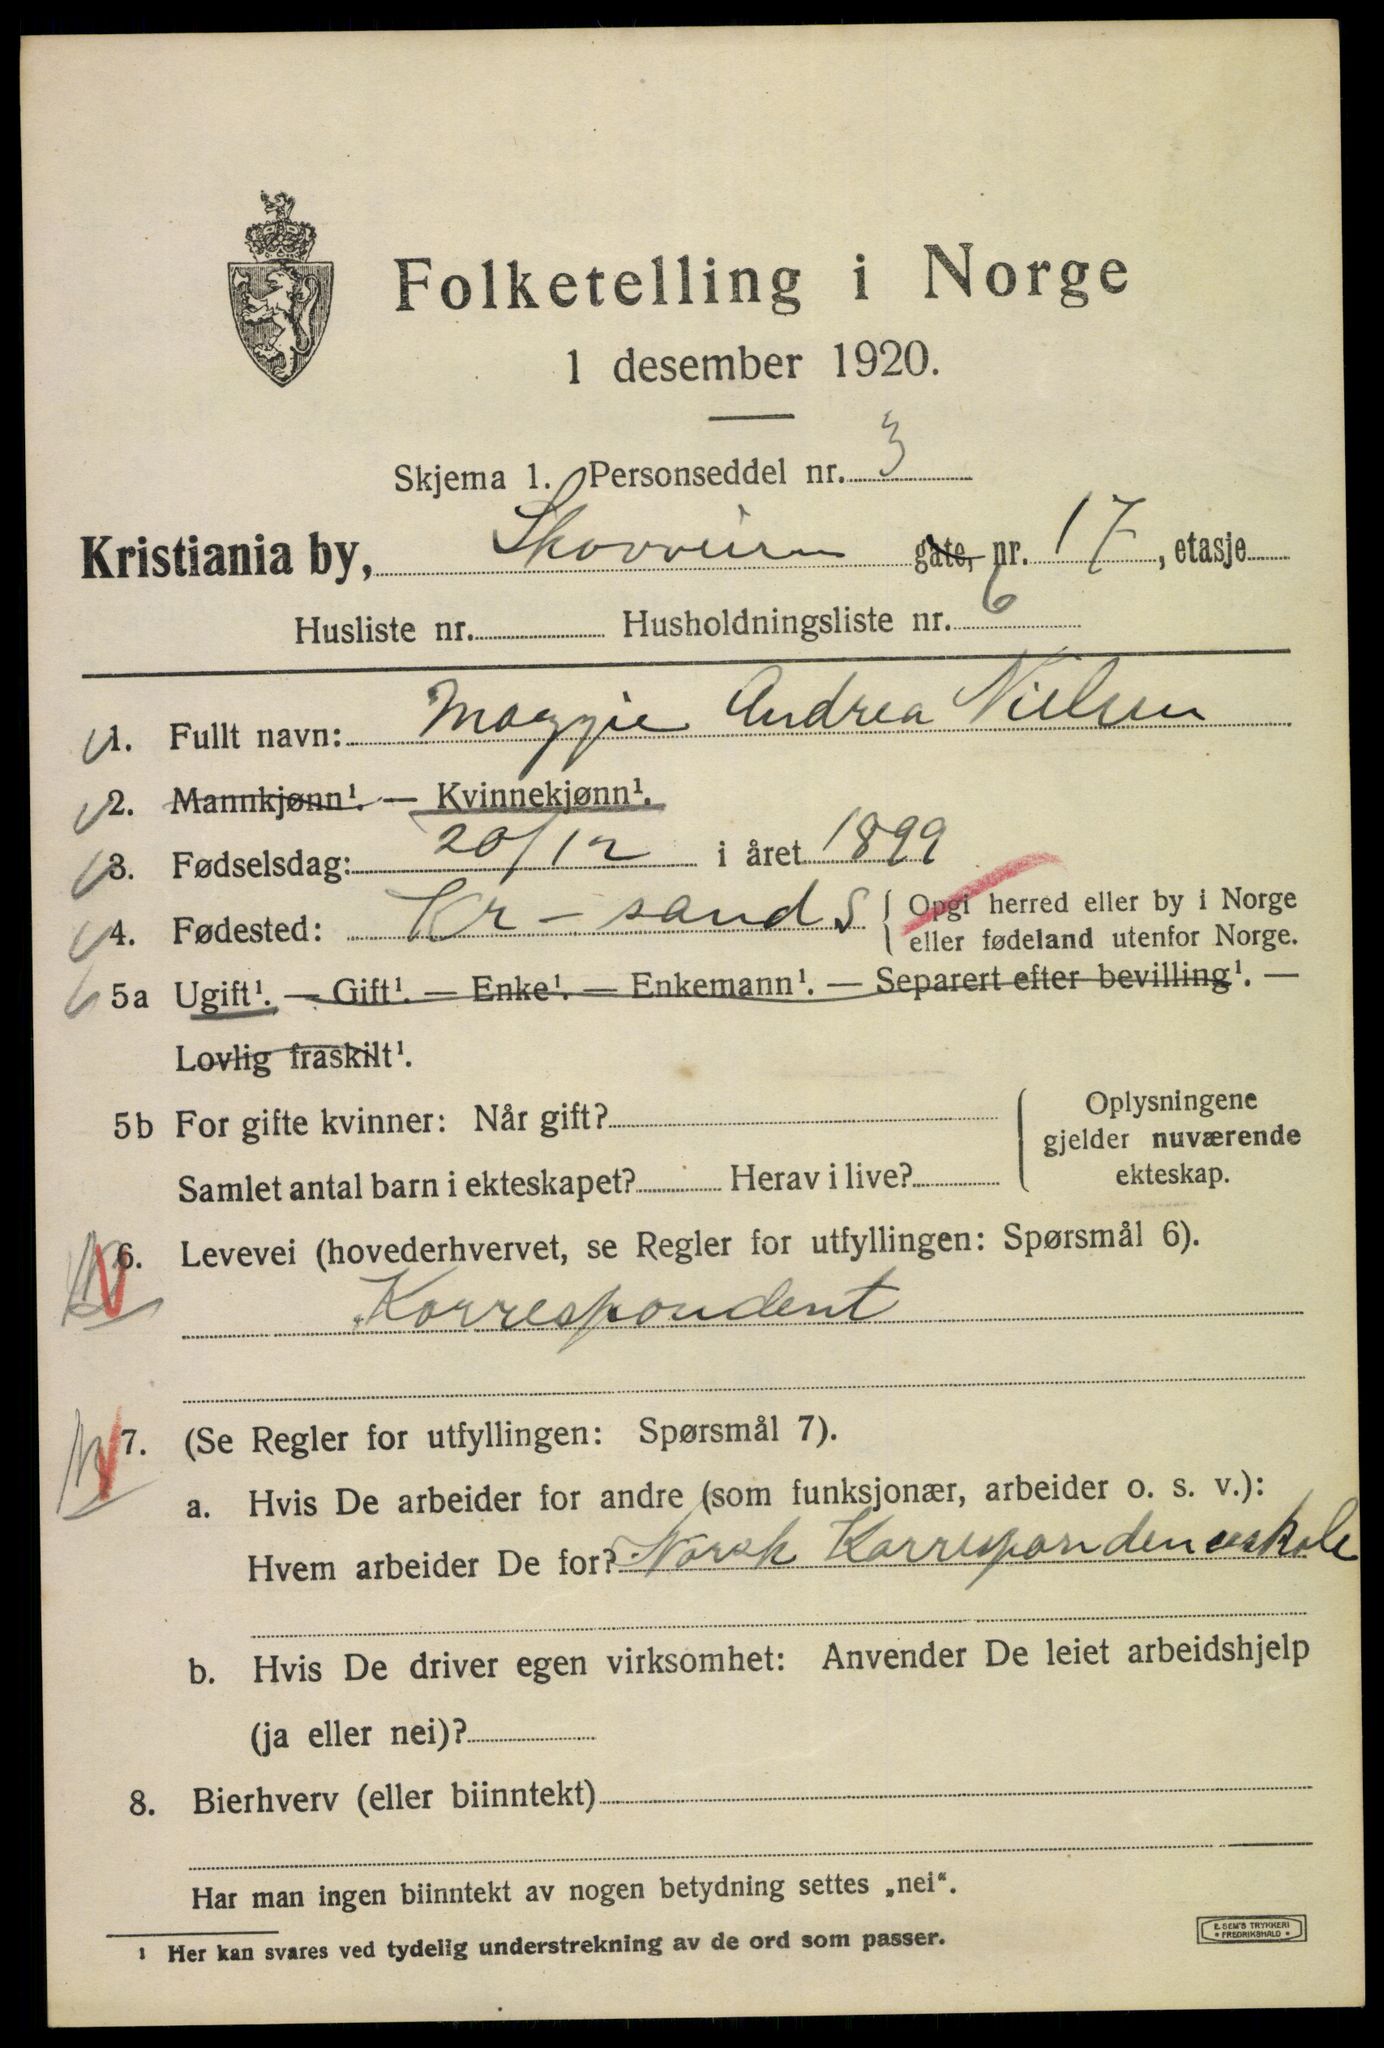 Folketelling i Norge
1 desember 1920.
Skjema 1. Personseddel nr. 3
Kristiania by, Skovveien gate, nr. 17, etasje
Husliste nr. Husholdningsliste nr. 6
1. Fullt navn: Maggie Andrea Nielsen
2. Mannkjønn¹. — Kvinnekjønn¹.
3. Fødselsdag: 20/12 i året 1899
4. Fødested: Kr-sand S { Opgi herred eller by i Norge
eller fødeland utenfor Norge.
5a Ugift¹. — Gift¹. — Enke¹. — Enkemann¹. — Separert efter bevilling¹. —
Lovlig fraskilt¹.
5b For gifte kvinner: Når gift? { Oplysningene
gjelder nuværende
Samlet antal barn i ekteskapet? Herav i live? ekteskap.
6. Levevei (hovederhvervet, se Regler for utfyllingen: Spørsmål 6).
Korrespondent
7. (Se Regler for utfyllingen: Spørsmål 7).
a. Hvis De arbeider for andre (som funksjonær, arbeider o. s. v.):
Hvem arbeider De for? Norsk Korrespondenceskole
b. Hvis De driver egen virksomhet: Anvender De leiet arbeidshjelp
(ja eller nei)?
8. Bierhverv (eller biinntekt)
Har man ingen biinntekt av nogen betydning settes „nei“.
¹ Her kan svares ved tydelig understrekning av de ord som passer.
E. SEM'S TRYKKERI
* FREDRIKSHALD *